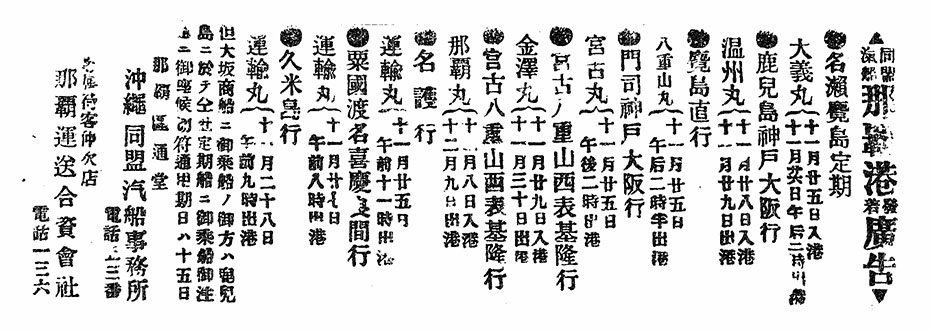 ▲同盟汽船那覇港發着廣告▼
●名瀨鹿兒島定期
大義丸 十一月廿五日入港
十一月廿六日午后二時出帆
●鹿兒島神戸大阪行
温州丸 十一月廿八日入港
十一月廿九日出港
●鹿兒島直行
八重山丸 十一月廿五日
午后二時半出港
●門司神戸大阪行
宮古丸 十一月廿五日
午後二時出港
●宮古八重山西表基隆行
金澤丸 十一月廿九日入港
十一月三十日出港
●宮古八重山西表基隆行
那覇丸 十二月八日入港
十二月九日出港
●名護行
運輸丸 十一月廿五日
午前十一時出港
●粟國渡名喜慶良間行
運輸丸 十一月 日
午前八時出港
●久米島行
運輸丸 十一月二十八日
午前九時出港
但大坂商船ニ御乘船ノ御方ハ鹿兒
島ニ於テ仝社定期船ニ御乘船御注
意ニ御座候 切符通用期日ハ十五日
那覇區通堂
沖繩同盟汽船事務所
電話 三番
荷客仲次店
那覇運送合資會社
電話一三六